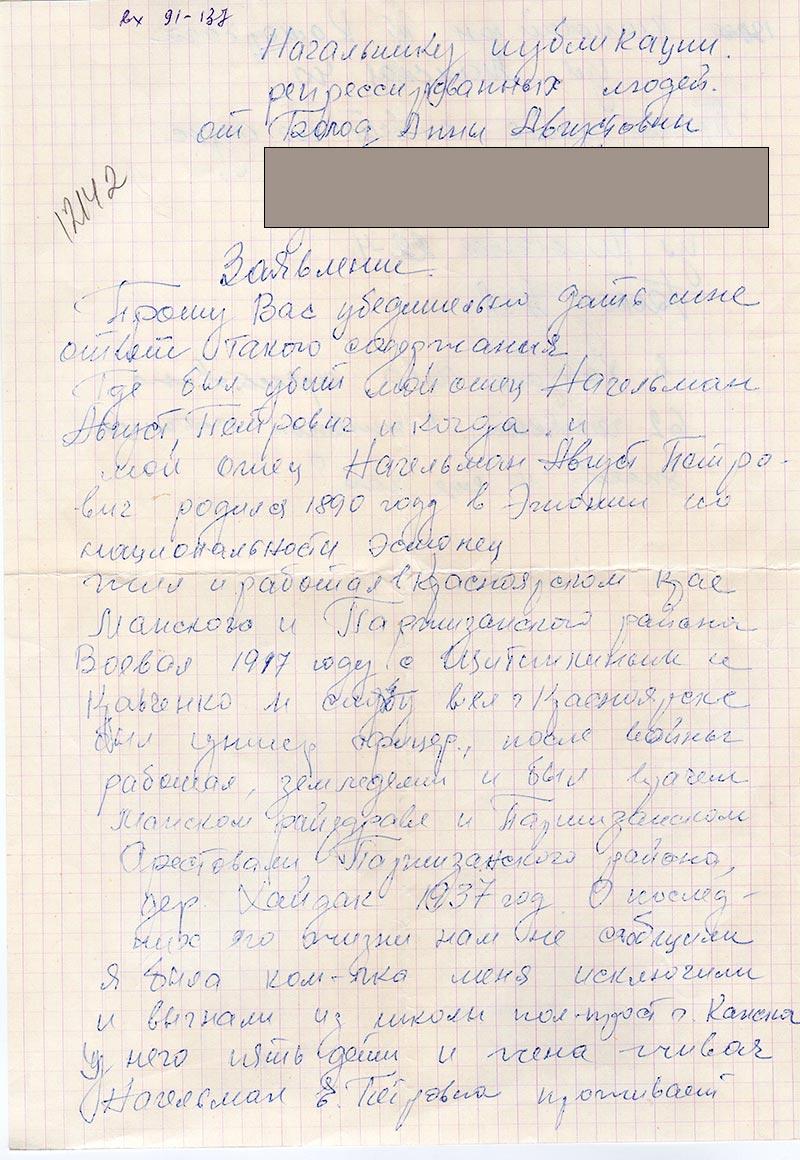 вх 91-137
Начальнику публикации.
репрессированных людей.
от Голод Анны Августовны
12142
Заявление.
Прошу Вас убедительно дать мне
ответ такого содержания
Где был убит мой отец Нагельман
Август, Петрович и когда. и
мой отец Нагельман Август Петро-
вич родился 1890 году в Эстонии по
национальности эстонец
жил и работал в Красноярском крае
Манского и Партизанского района
Воевал 1917 году с Щитинкиным и
Кравченко и службу вел г Красноярске
был офицер., после войны
работал, земледелии и был врачем
Манском райздраве и Партизанском
Арестовали, Партизанского района,
дер. Хайдак 1937 год. О послед-
них его жизни нам не сообщили
я была ком-лка меня исключили
и выгнали из школы г. Канска
У него пять детей и жена живая
Нагельман Е. Петровна проживает